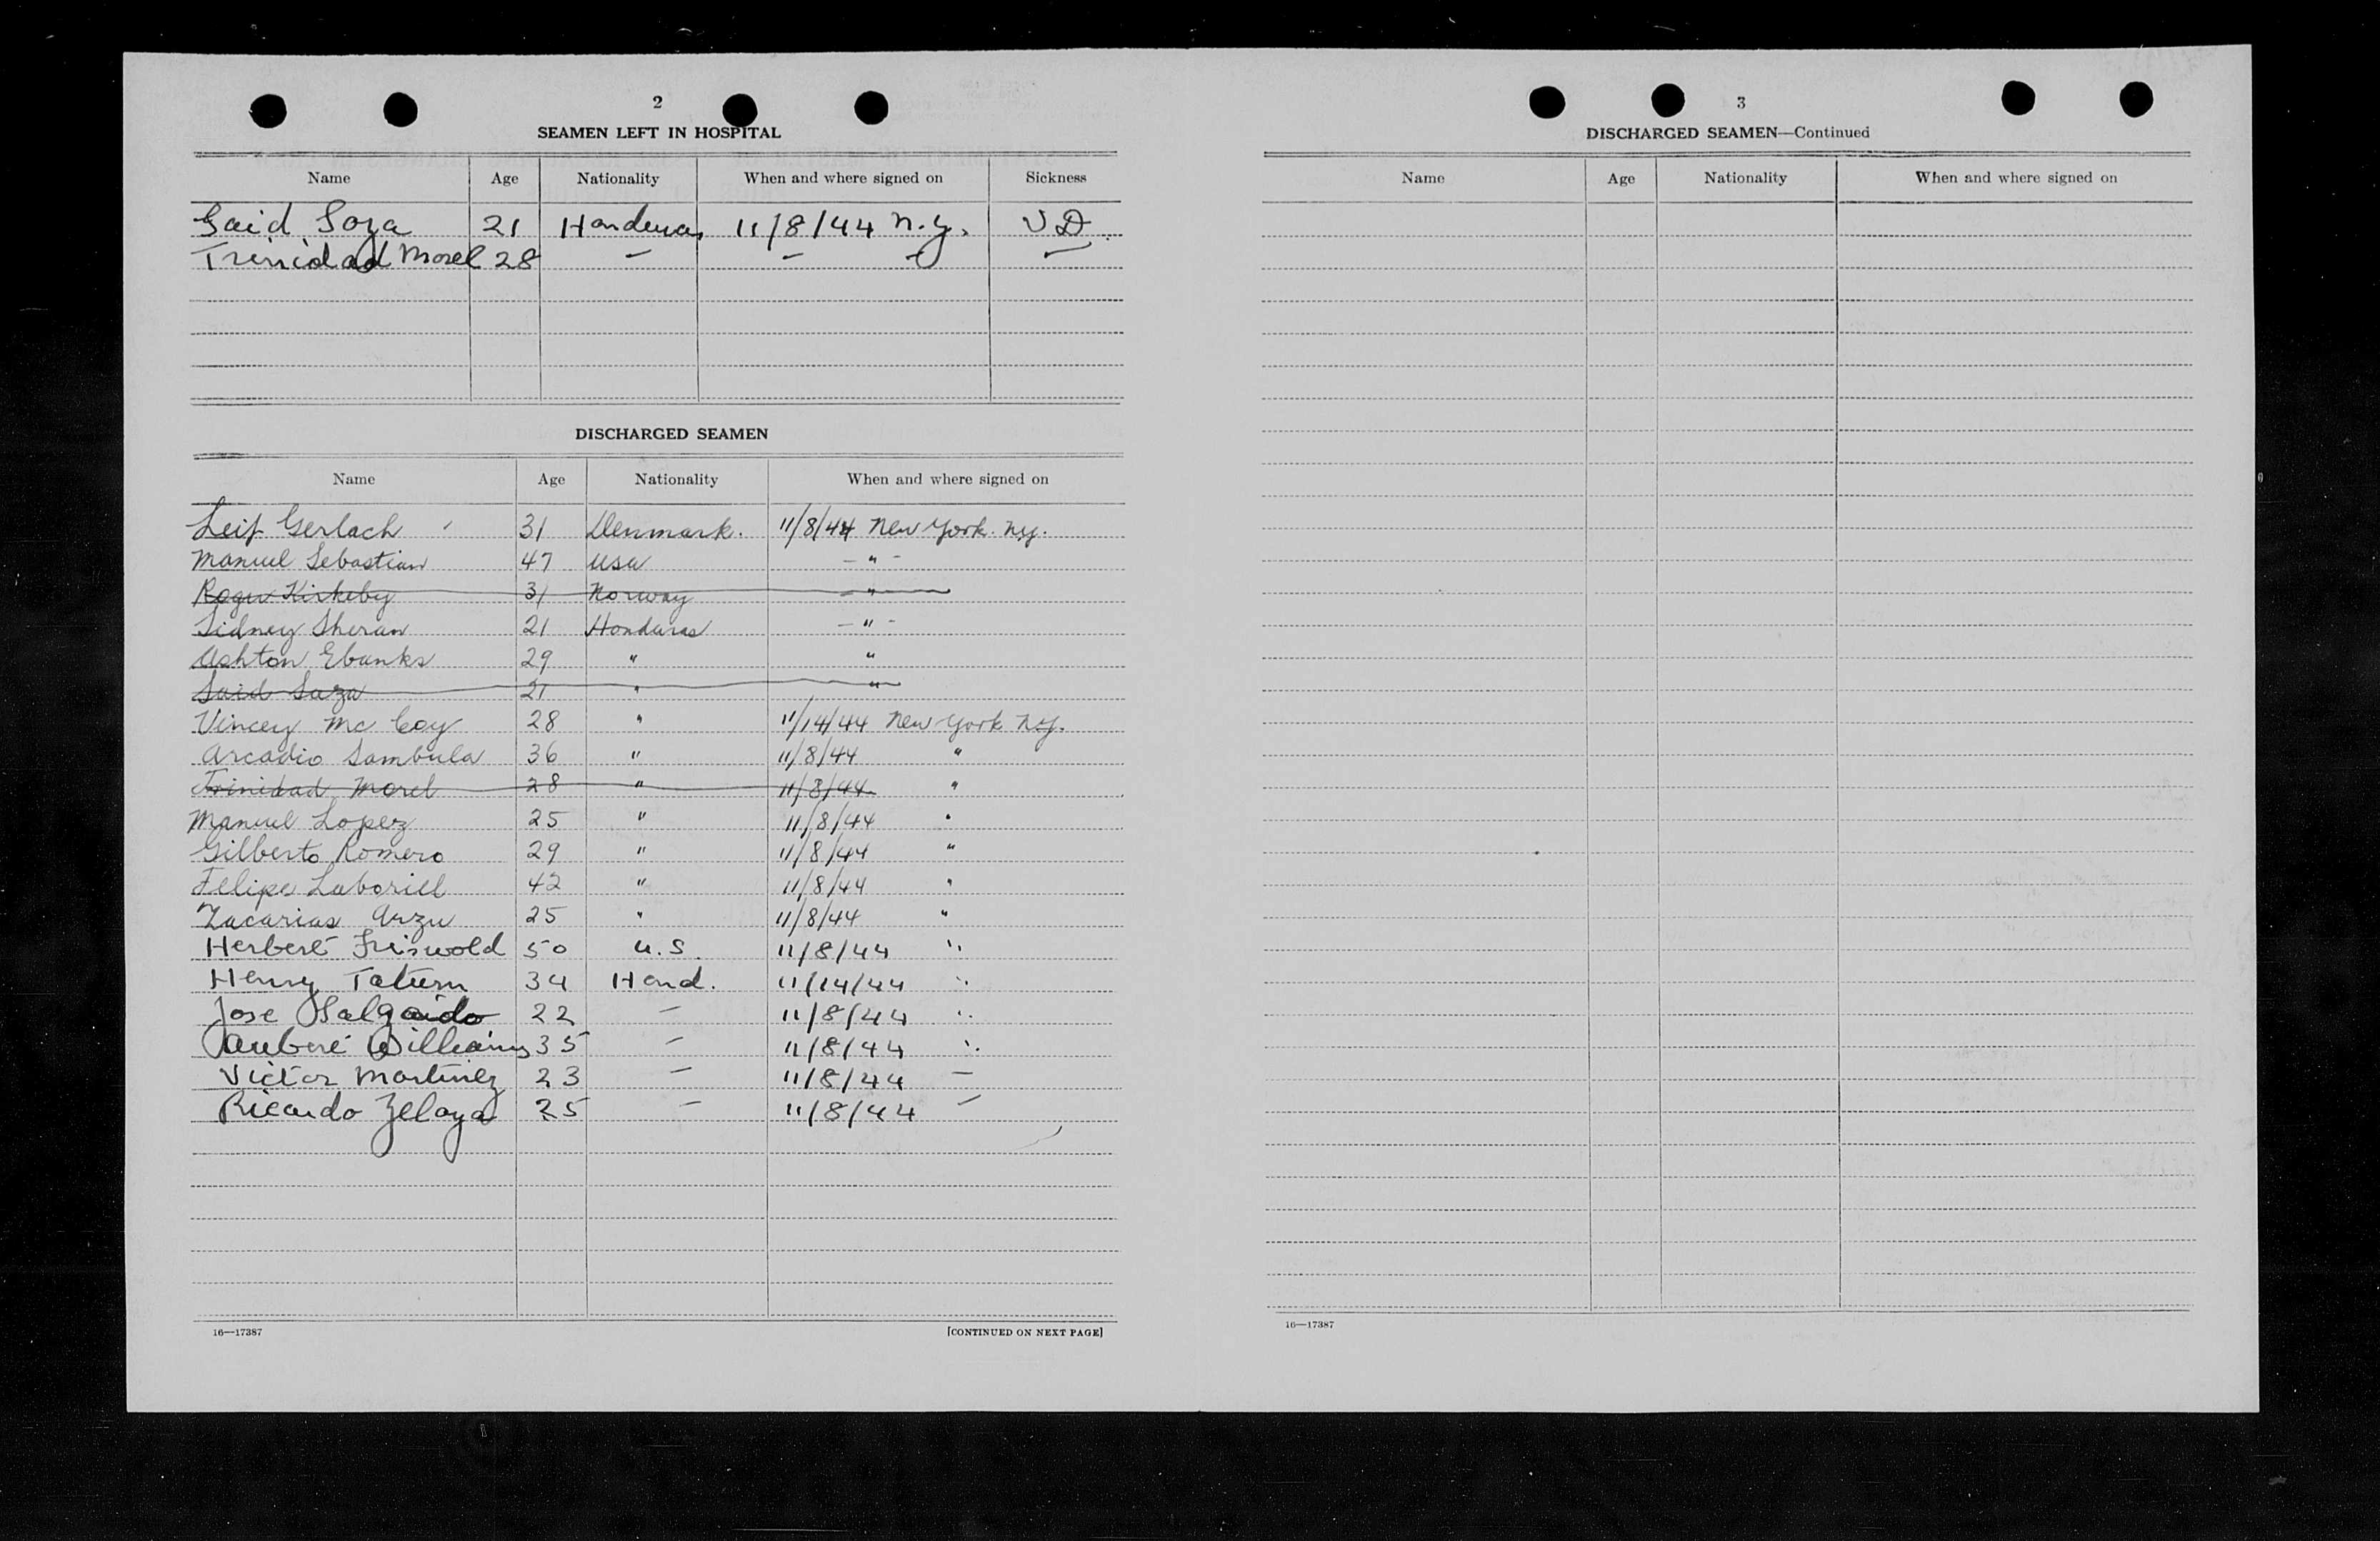 2
SEAMEN LEFT IN HOSPITAL
Name Age Nationality When and where signed on Sickness
Said Soza 21 Honduras 11/8/44 N.Y. VD
Trinidad Morel 28 — — — —
DISCHARGED SEAMEN
Name Age Nationality When and where signed on
Leif Gerlach 31 Denmark. 11/8/44 New York. Ny.
Manuel Sebastian 47 USA — " —
Roger Kirkeby 31 Norway — " —
Sidney Sheran 21 Honduras — " —
Ashton Ebanks 29 " "
Said Saza 21 " "
Vincey Mc Coy 28 " 11/14/44 New York Ny.
Arcadio Sambula 36 " 11/8/44 "
Trinidad Morel 28 " 11/8/44 "
Manuel Lopez 25 " 11/8/44 "
Gilberto Romero 29 " 11/8/44 "
Felipe Laboriel 42 " 11/8/44 "
Zacarias Arzu 25 " 11/8/44 "
Herbert Friswold 50 U.S. 11/8/44 "
Henry Tatum 34 Hond. 11/14/44 "
Jose Salgado 22 — 11/8/44 "
Williams 35 — 11/8/44 "
Victor Martinez 23 — 11/8/44 —
Ricardo Zelaya 25 — 11/8/44 —
16—17387 [CONTINUED ON NEXT PAGE]
3
DISCHARGED SEAMEN—Continued
Name Age Nationality When and where signed on
16—17387